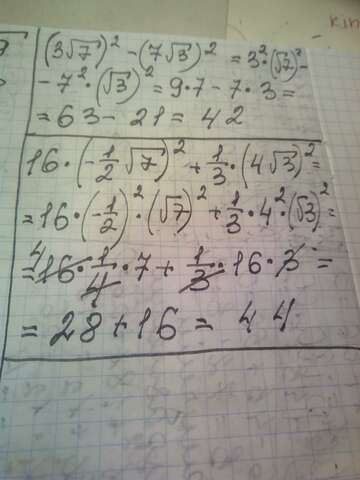 (3√7)² - (7√3)² = 3²·(√7)² -
- 7²·(√3)² = 9·7 - 7·3 =
= 63 - 21 = 42
16·(-1/2 √7)² + 1/3·(4√3)² =
= 16·(-1/2)²·(√7)² + 1/3·4²·(√3)² =
= 16·1/4·7 + 1/3·16·3 =
= 28 + 16 = 44